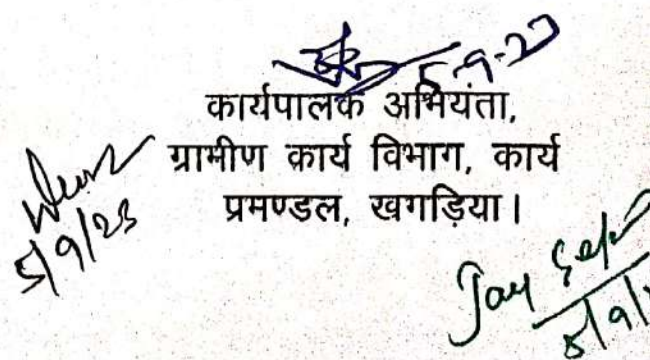 5-9-23
कार्यपालक अभियंता,
ग्रामीण कार्य विभाग, कार्य
प्रमण्डल, खगड़िया।
5/9/23